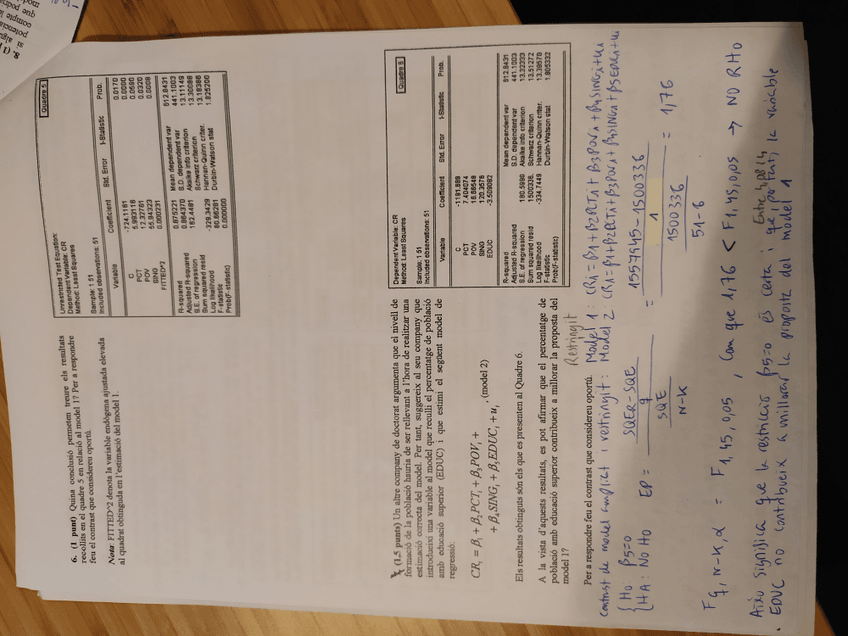 6. (1 punt) Quina conclusió permeten treure els resultats
recollits en el quadre 5 en relació al model 1? Per a respondre
feu el contrast que considereu oportú.
Nota: FITTED^2 denota la variable endògena ajustada elevada
al quadrat obtinguda en l'estimació del model 1.
Quadre 5
Unrestricted Test Equation:
Dependent Variable: CR
Method: Least Squares
Sample: 1 51
Included observations: 51
Variable Coefficient Std. Error t-Statistic Prob.
C -724.1161 0.0170
PCT 0.0000
POV 12.32761 0.0590
SING 55.94323 0.0320
FITTED^2 0.000231 0.0009
R-squared 0.875221 Mean dependent var 612.8431
Adjusted R-squared 0.864370 S.D. dependent var 441.1003
S.E. of regression 162.4481 Akaike info criterion 13.11149
Sum squared resid Schwarz criterion 13.30088
Log likelihood -329.3429 Hannan-Quinn criter. 13.18386
F-statistic 80.66281 Durbin-Watson stat 1.825200
Prob(F-statistic) 0.000000
(1,5 punts) Un altre company de doctorat argumenta que el nivell de
formació de la població hauria de ser rellevant a l'hora de realitzar una
estimació correcta del model. Per tant, suggereix al seu company que
introdueixi una variable al model que reculli el percentatge de població
amb educació superior (EDUC) i que estimi el següent model de
regressió:
CRᵢ = β₁ + β₂PCTᵢ + β₃POVᵢ +
+ β₄SINGᵢ + β₅EDUCᵢ + uᵢ , (model 2)
Els resultats obtinguts són els que es presenten al Quadre 6.
A la vista d'aquests resultats, es pot afirmar que el percentatge de
població amb educació superior contribueix a millorar la proposta del
model 1?
Per a respondre feu el contrast que considereu oportú.
Quadre 6
Dependent Variable: CR
Method: Least Squares
Sample: 1 51
Included observations: 51
Variable Coefficient Std. Error t-Statistic Prob.
C -1191.689
PCT 7.404074
POV 16.66548
SING 120.3576
EDUC -3.509082
R-squared Mean dependent var 612.8431
Adjusted R-squared S.D. dependent var 441.1003
S.E. of regression 180.5998 Akaike info criterion 13.32333
Sum squared resid 1500336. Schwarz criterion 13.51272
Log likelihood -334.7449 Hannan-Quinn criter. 13.39570
F-statistic Durbin-Watson stat 1.805332
Prob(F-statistic)
Restringit
Contrast de model ampliat i restringit: Model 1: CRi = β1 + β2PCTi + β3POVi + β4SINGi + ui
Model 2 CRi = β1 + β2PCTi + β3POVi + β4SINGi + β5EDUCi + ui
{ H0 β5=0
{ HA: NO H0
EP = (SQER-SQE / q) / (SQE / N-K) = (1557945-1500336 / 1) / (1500336 / 51-6) = 1,76
Fq, N-K, α = F1,45,0,05 , Com que 1,76 < F1,45,0,05 → NO RH0
Això significa que la restricció β5=0 és certa i que, per tant, la variable
EDUC no contribueix a millorar la proposta del model 1